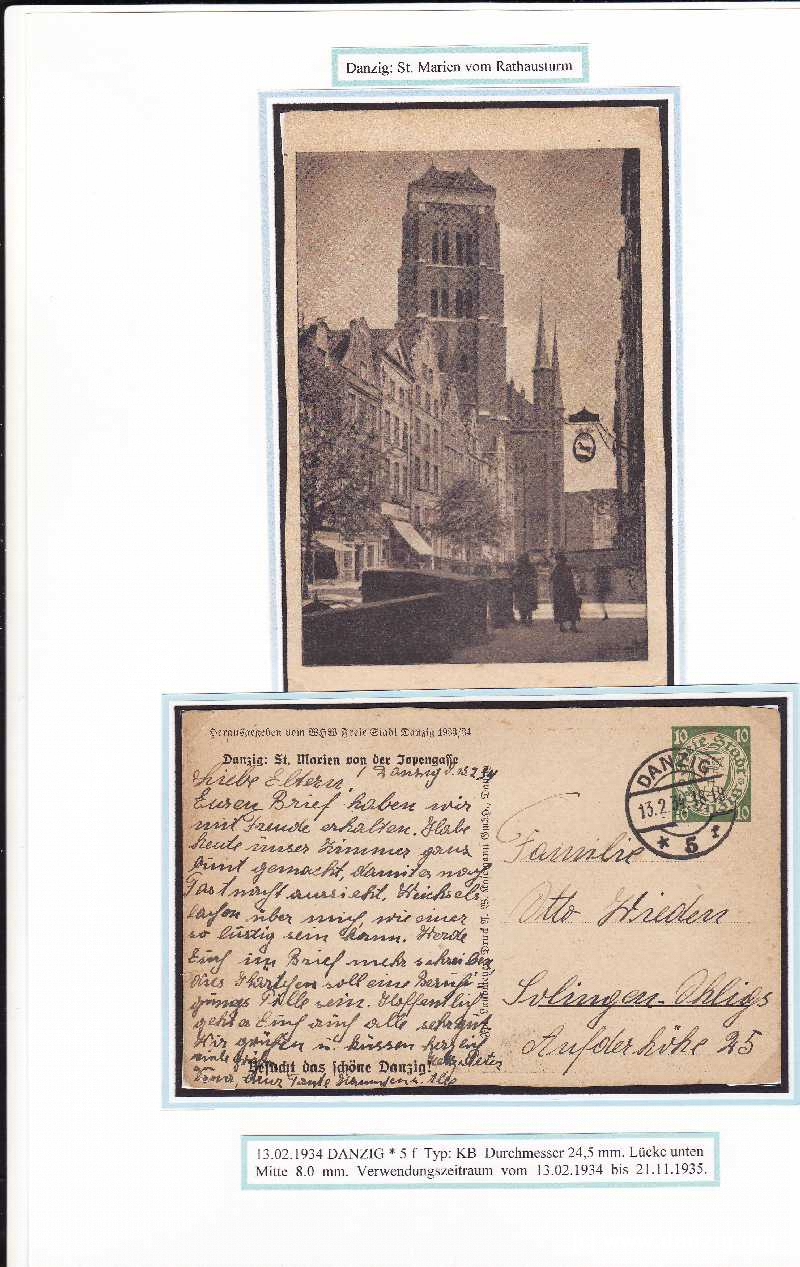 Danzig: St. Marien vom Rathausturm
Herausgegeben vom WHW Freie Stadt Danzig 1933/34
Danzig: St. Marien von der Jopengasse
Danzig d. 13.2.34
Liebe Eltern,
Euren Brief haben wir
mit Freude erhalten. Habe
heute unser Zimmer ganz
bunt gemacht, damit es nach
Fastnacht aussieht.
lachen über mich wie einer
so lustig sein kann. Werde
Euch im Brief mehr schreiben
dies Kärtchen soll eine Beruhi
gungs Pille sein. Hoffentlich
geht es Euch auch alle sehr gut
Wir grüßen u. küssen herzlich
viele Grüße
Peter
Besucht das schöne Danzig!
Tante
10 10
DANZIG
13.2.34
* 5 f
10 10
Familie
Otto Wieden
Solingen-Ohligs
Aufderhöhe 25
13.02.1934 DANZIG * 5 f Typ: KB Durchmesser 24,5 mm. Lücke unten
Mitte 8.0 mm. Verwendungszeitraum vom 13.02.1934 bis 21.11.1935.